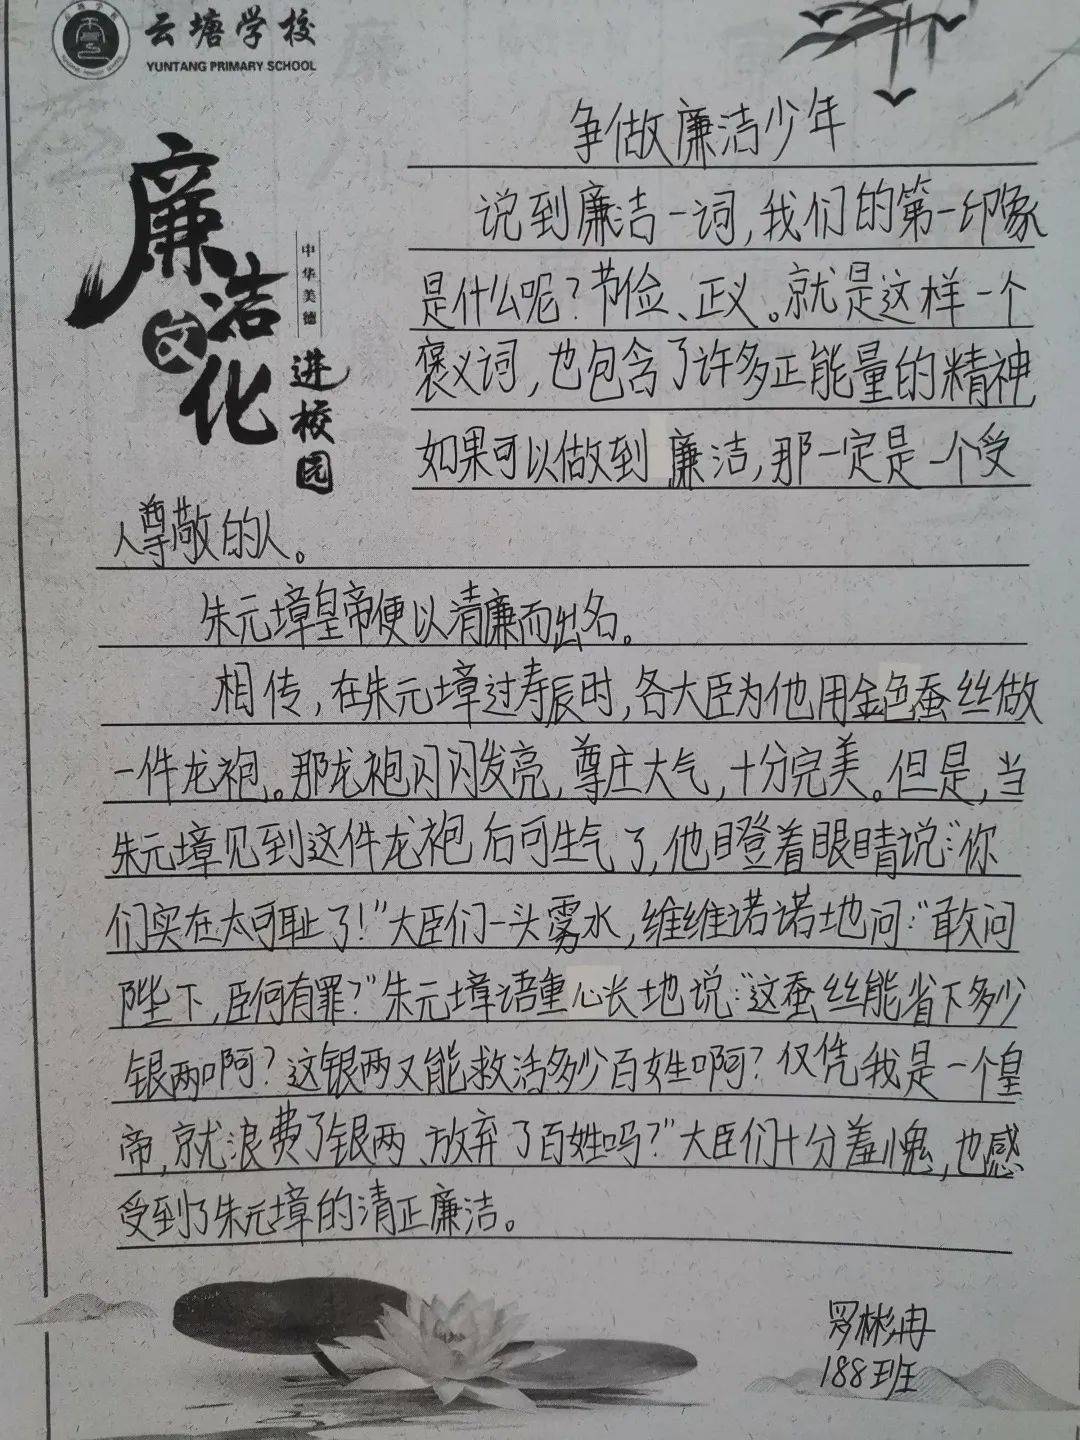 云塘学校
YUNTANG PRIMARY SCHOOL
廉洁文化
中华美德
进校园
争做廉洁少年
说到廉洁一词,我们的第一印象
是什么呢?节俭、正义。就是这样一个
褒义词,也包含了许多正能量的精神,
如果可以做到廉洁,那一定是一个受
人尊敬的人。
朱元璋皇帝便以清廉而出名。
相传,在朱元璋过寿辰时,各大臣为他用金色蚕丝做
一件龙袍。那龙袍闪闪发亮,尊庄大气,十分完美。但是,当
朱元璋见到这件龙袍后可生气了,他瞪着眼睛说:“你
们实在太可耻了!”大臣们一头雾水,维维诺诺地问:“敢问
陛下,臣何有罪?”朱元璋语重心长地说:“这蚕丝能省下多少
银两啊?这银两又能救活多少百姓啊?仅凭我是一个皇
帝,就浪费了银两、放弃了百姓吗?”大臣们十分羞愧,也感
受到了朱元璋的清正廉洁。
罗彬冉
188班